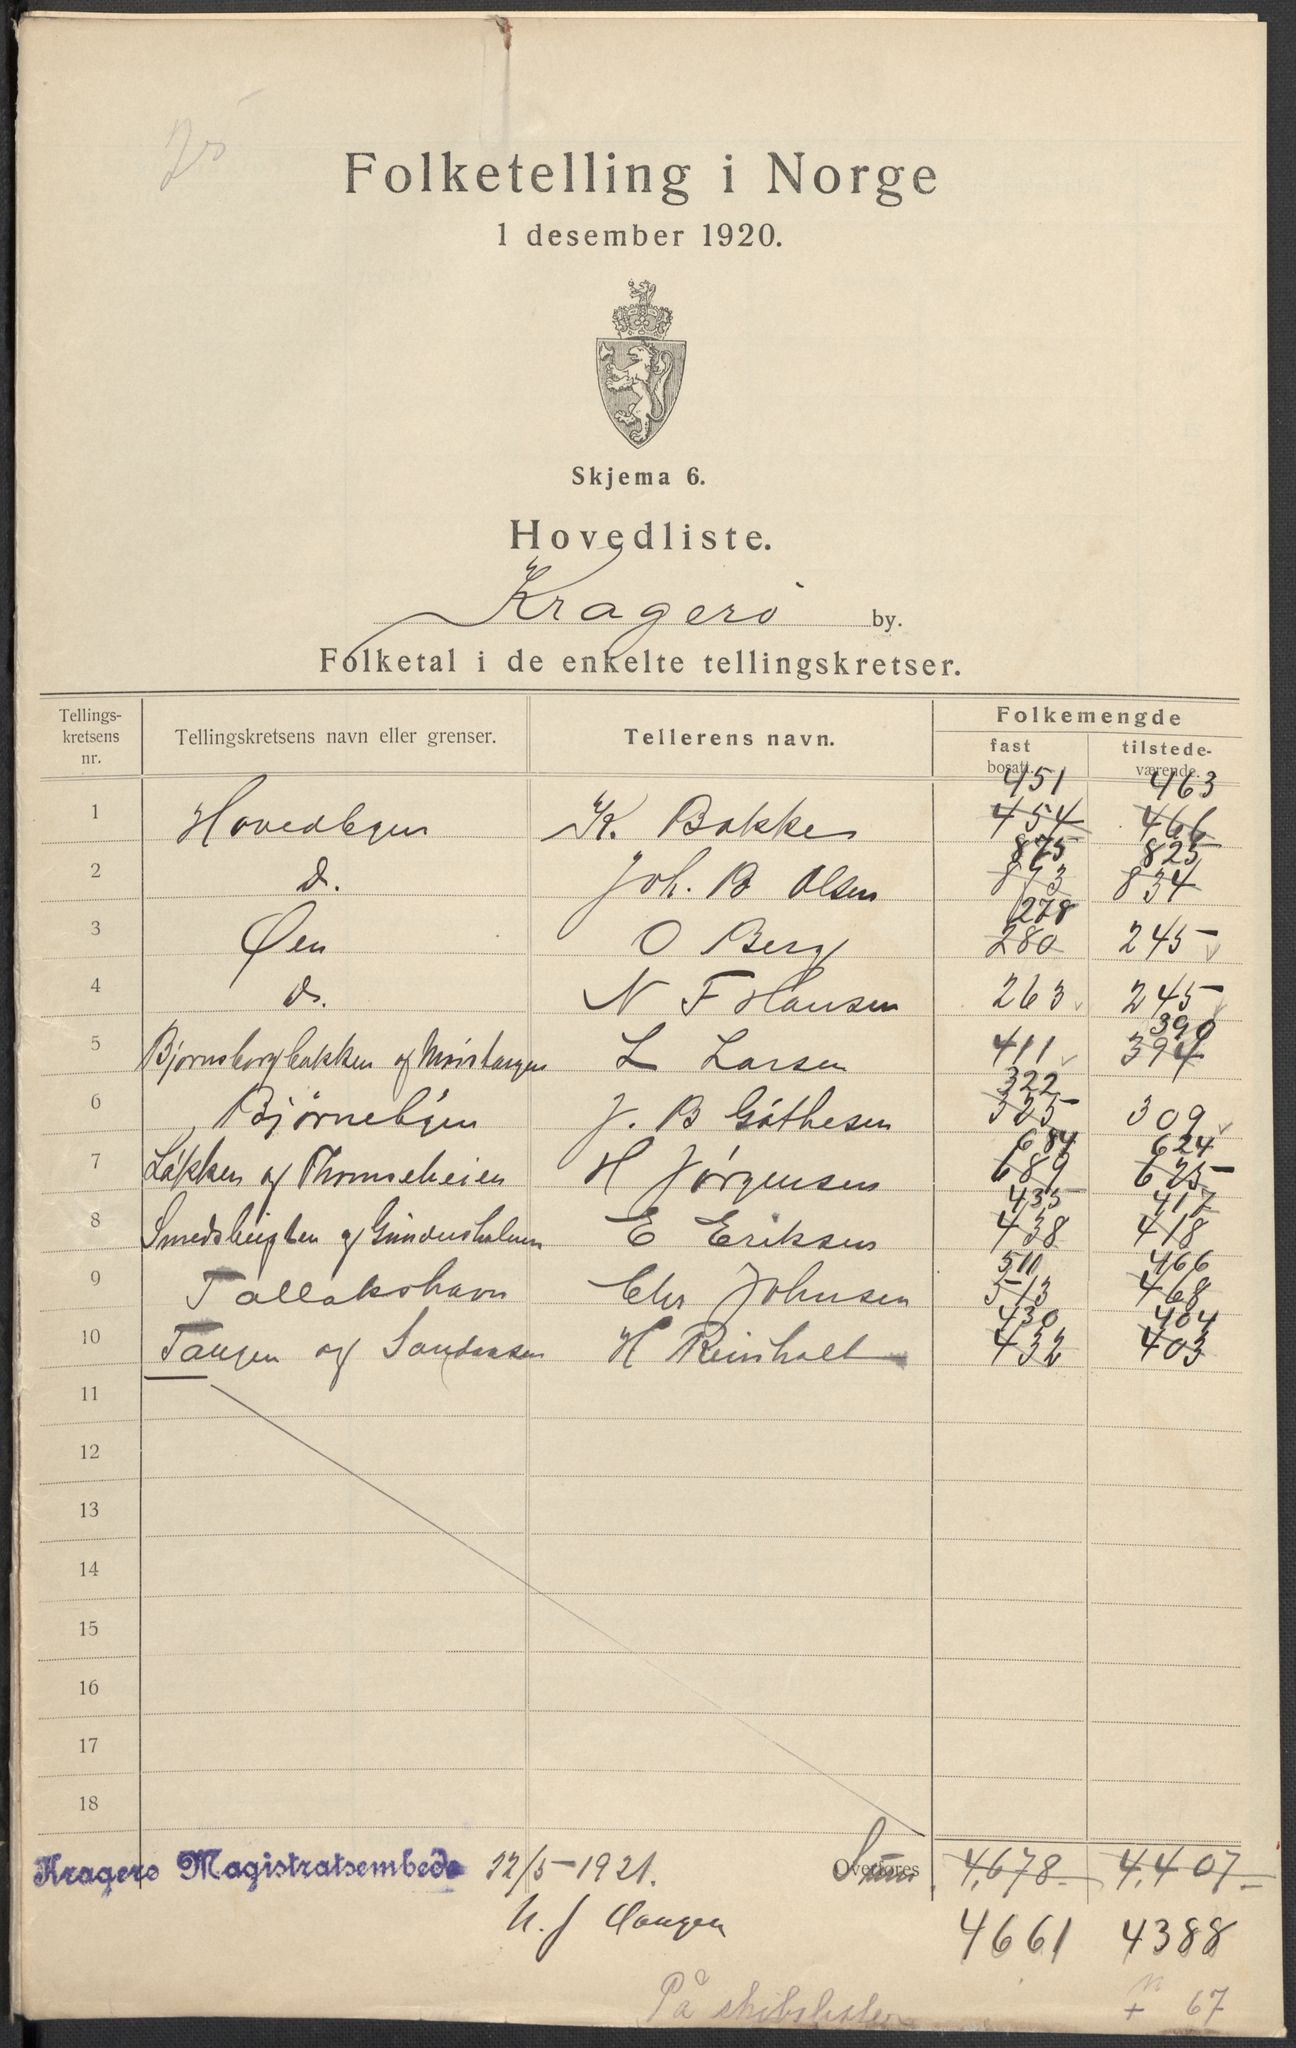 Folketelling i Norge
1 desember 1920.
Skjema 6.
Hovedliste.
Kragerø by.
Folketal i de enkelte tellingskretser.
Tellings-kretsens nr. Tellingskretsens navn eller grenser. Tellerens navn. Folkemengde fast bosatt. tilstede-værende.
451 463
1 Hovedbyen K. Bakken 454 466
875 825
2 d. Joh. B Olsen 873 834
278
3 Øen O Berg 280 245
4 d. N F Hansen 263 245
390
5 Bjørnsborgbakken og L Larsen 411 394
322
6 Bjørnebyen J. B Gathesen 325 309
684 624
7 Løkken og Thomseheien H Jørgensen 689 625
435 417
8 Smedsbugten og Gundersholmen E Eriksen 438 418
511 466
9 Tallakshavn Chr Johnsen 513 468
430 404
10 Tangen og H Reinholt 432 403
11
12
13
14
15
16
17
18
Kragerø Magistratsembede 12/5-1921. Overføres Sum 4,678 4,407
4661 4388
På skibslister + 67